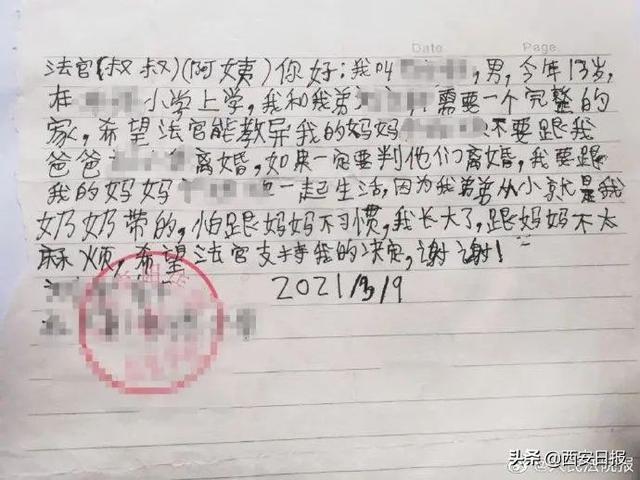 Date Page
法官(叔叔)(阿姨)你好:我叫,男,今年13岁,
在小学上学,我和我弟需要一个完整的
家,希望法官能教导我的妈妈不要跟我
爸爸离婚,如果一定要判他们离婚,我要跟
我的妈妈一起生活,因为我弟弟从小就是我
奶奶带的,怕跟妈妈不习惯,我长大了,跟妈妈不太
麻烦,希望法官支持我的决定,谢谢!
2021/3/9
头条 @西安日报
@人民法院报